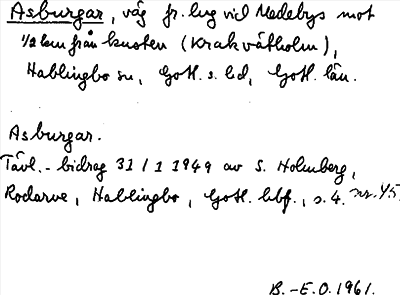 Asburgar, väg fr. lvg vid Medebys mot
1/2 km från kusten (Krakvätholm),
Hablingbo sn, Gotl. s. hd, Gotl. län.
Asburgar.
Tävl.-bidrag 31/1 1949 av S. Holmberg,
Rodarve, Hablingbo, Gotl. hbf., s. 4. nr. 45.
B.-E.O. 1961.